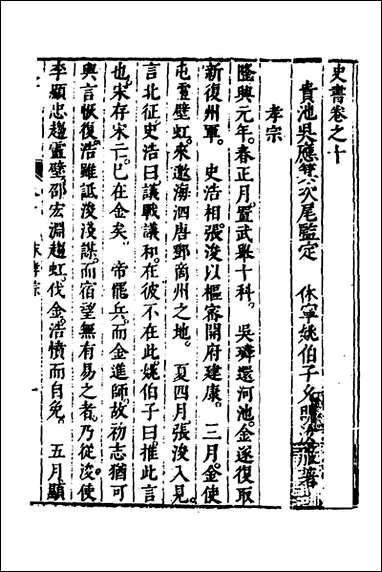 史書卷之十
貴池吳應箕次尾監定　休寧姚伯子允明著
孝宗
隆興元年。春正月。置武舉十科。　吳璘還河池。金遂復取
新復州軍。　史浩相張浚以樞密開府建康。　三月。金使
屯靈壁虹。來邀海泗唐鄧商州之地。　夏四月張浚入見。
言北征。史浩曰議戰議和。在彼不在此姚伯子曰。推此言
也。宋存宋亡。已在金矣。　帝罷兵。而金進師。故初志猶可
與言恢復。浩雖詆浚淺謀。而宿望無有易之者。乃從浚。使
李顯忠趨靈壁邵宏淵趨虹。伐金。浩憤而自免。　五月。顯
孝宗
一